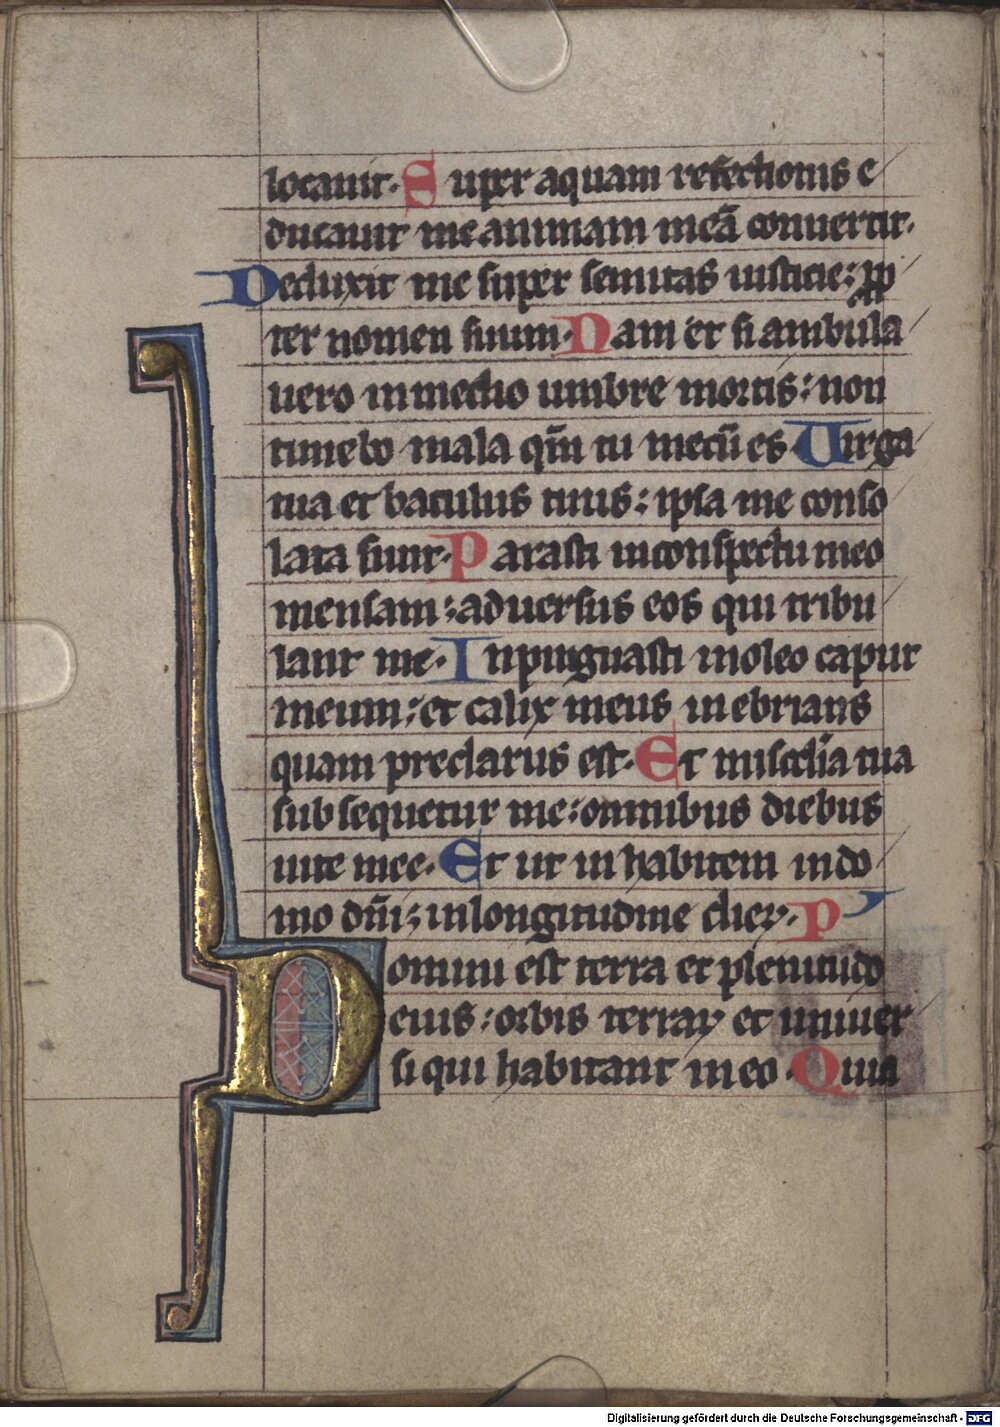 locauit. Super aquam refectionis e
ducauit me animam meā conuertit.
Deduxit me super semitas iusticie: ꝓp
ter nomen suum. Nam et si ambula
uero in medio umbre mortis: non
timebo mala qm̄ tu mecū es Uirga
tua et baculus tuus: ipsa me conso
lata sunt. Parasti in conspectu meo
mensam: aduersus eos qui tribu
lant me. Inpinguasti in oleo caput
meum: et calix meus inebrians
quam preclarus est. Et misc̄dia tua
subsequetur me: omnibus diebus
uite mee. Et ut inhabitem in do
mo dn̄i: in longitudine dieꝝ. P
Domini est terra et plenitudo
eius: orbis terraꝝ et uniuer
si qui habitant in eo. Quia
Digitalisierung gefördert durch die Deutsche Forschungsgemeinschaft - DFG